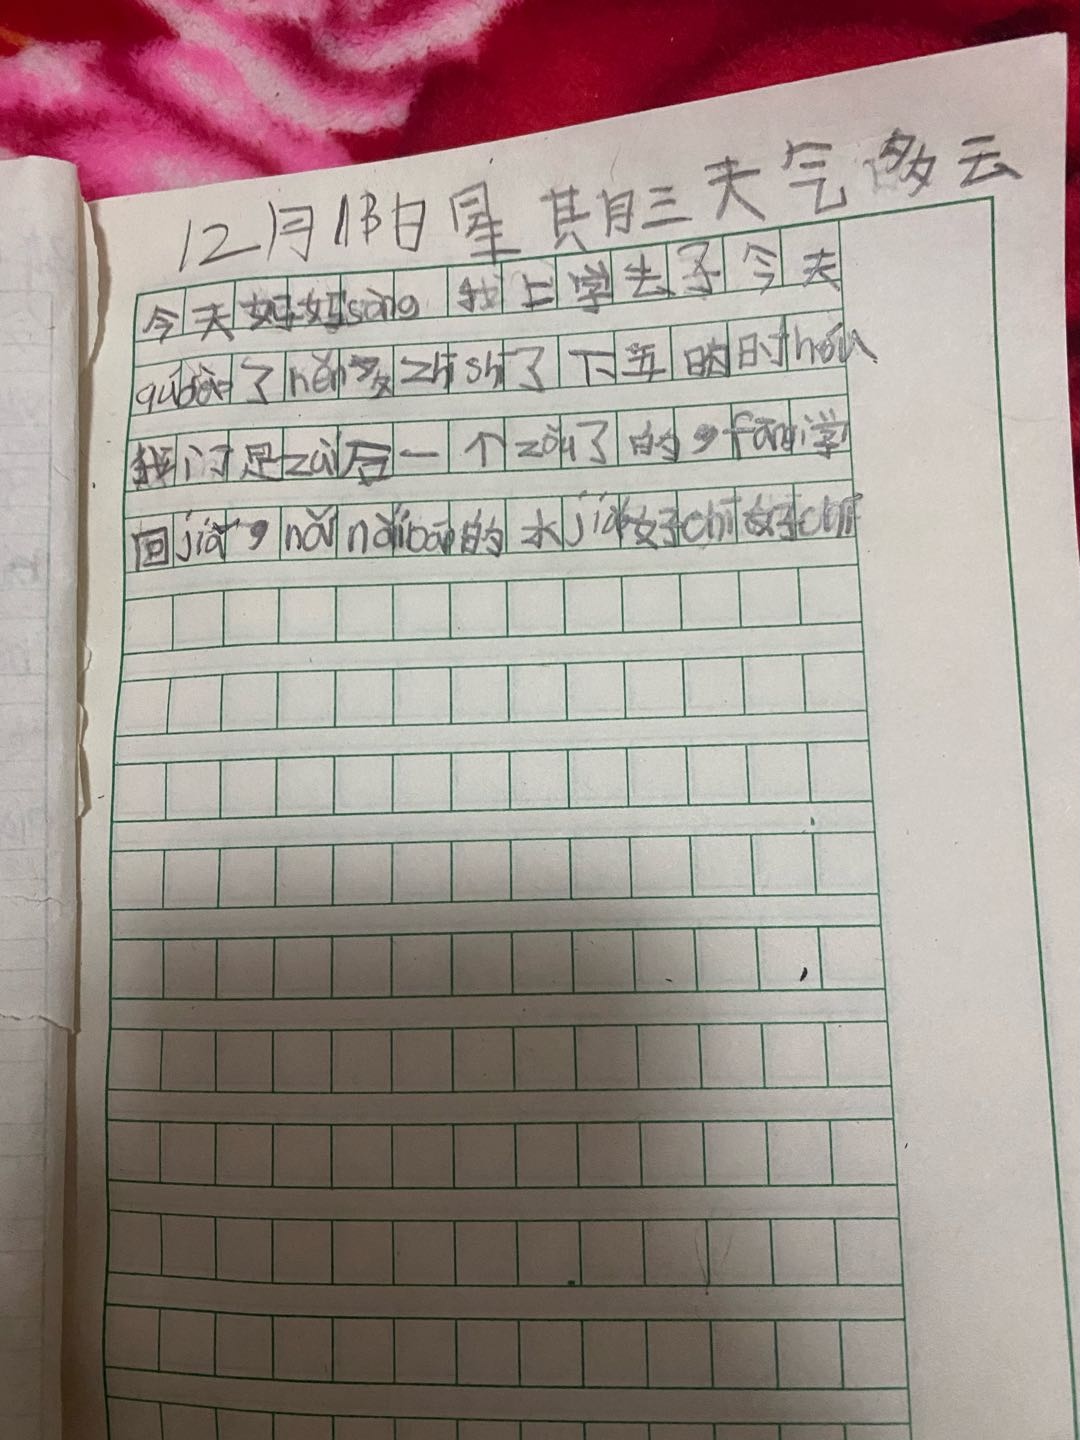 12月13日星其月三天气多云
今天妈妈sòng我上学去了今天
了hěn多zhī shi了下五的时hóu
我们是zuì后一个zǒu了的，fàng学
回jiā，nǎi nǎi bāo的水jiǎo好chī好chī